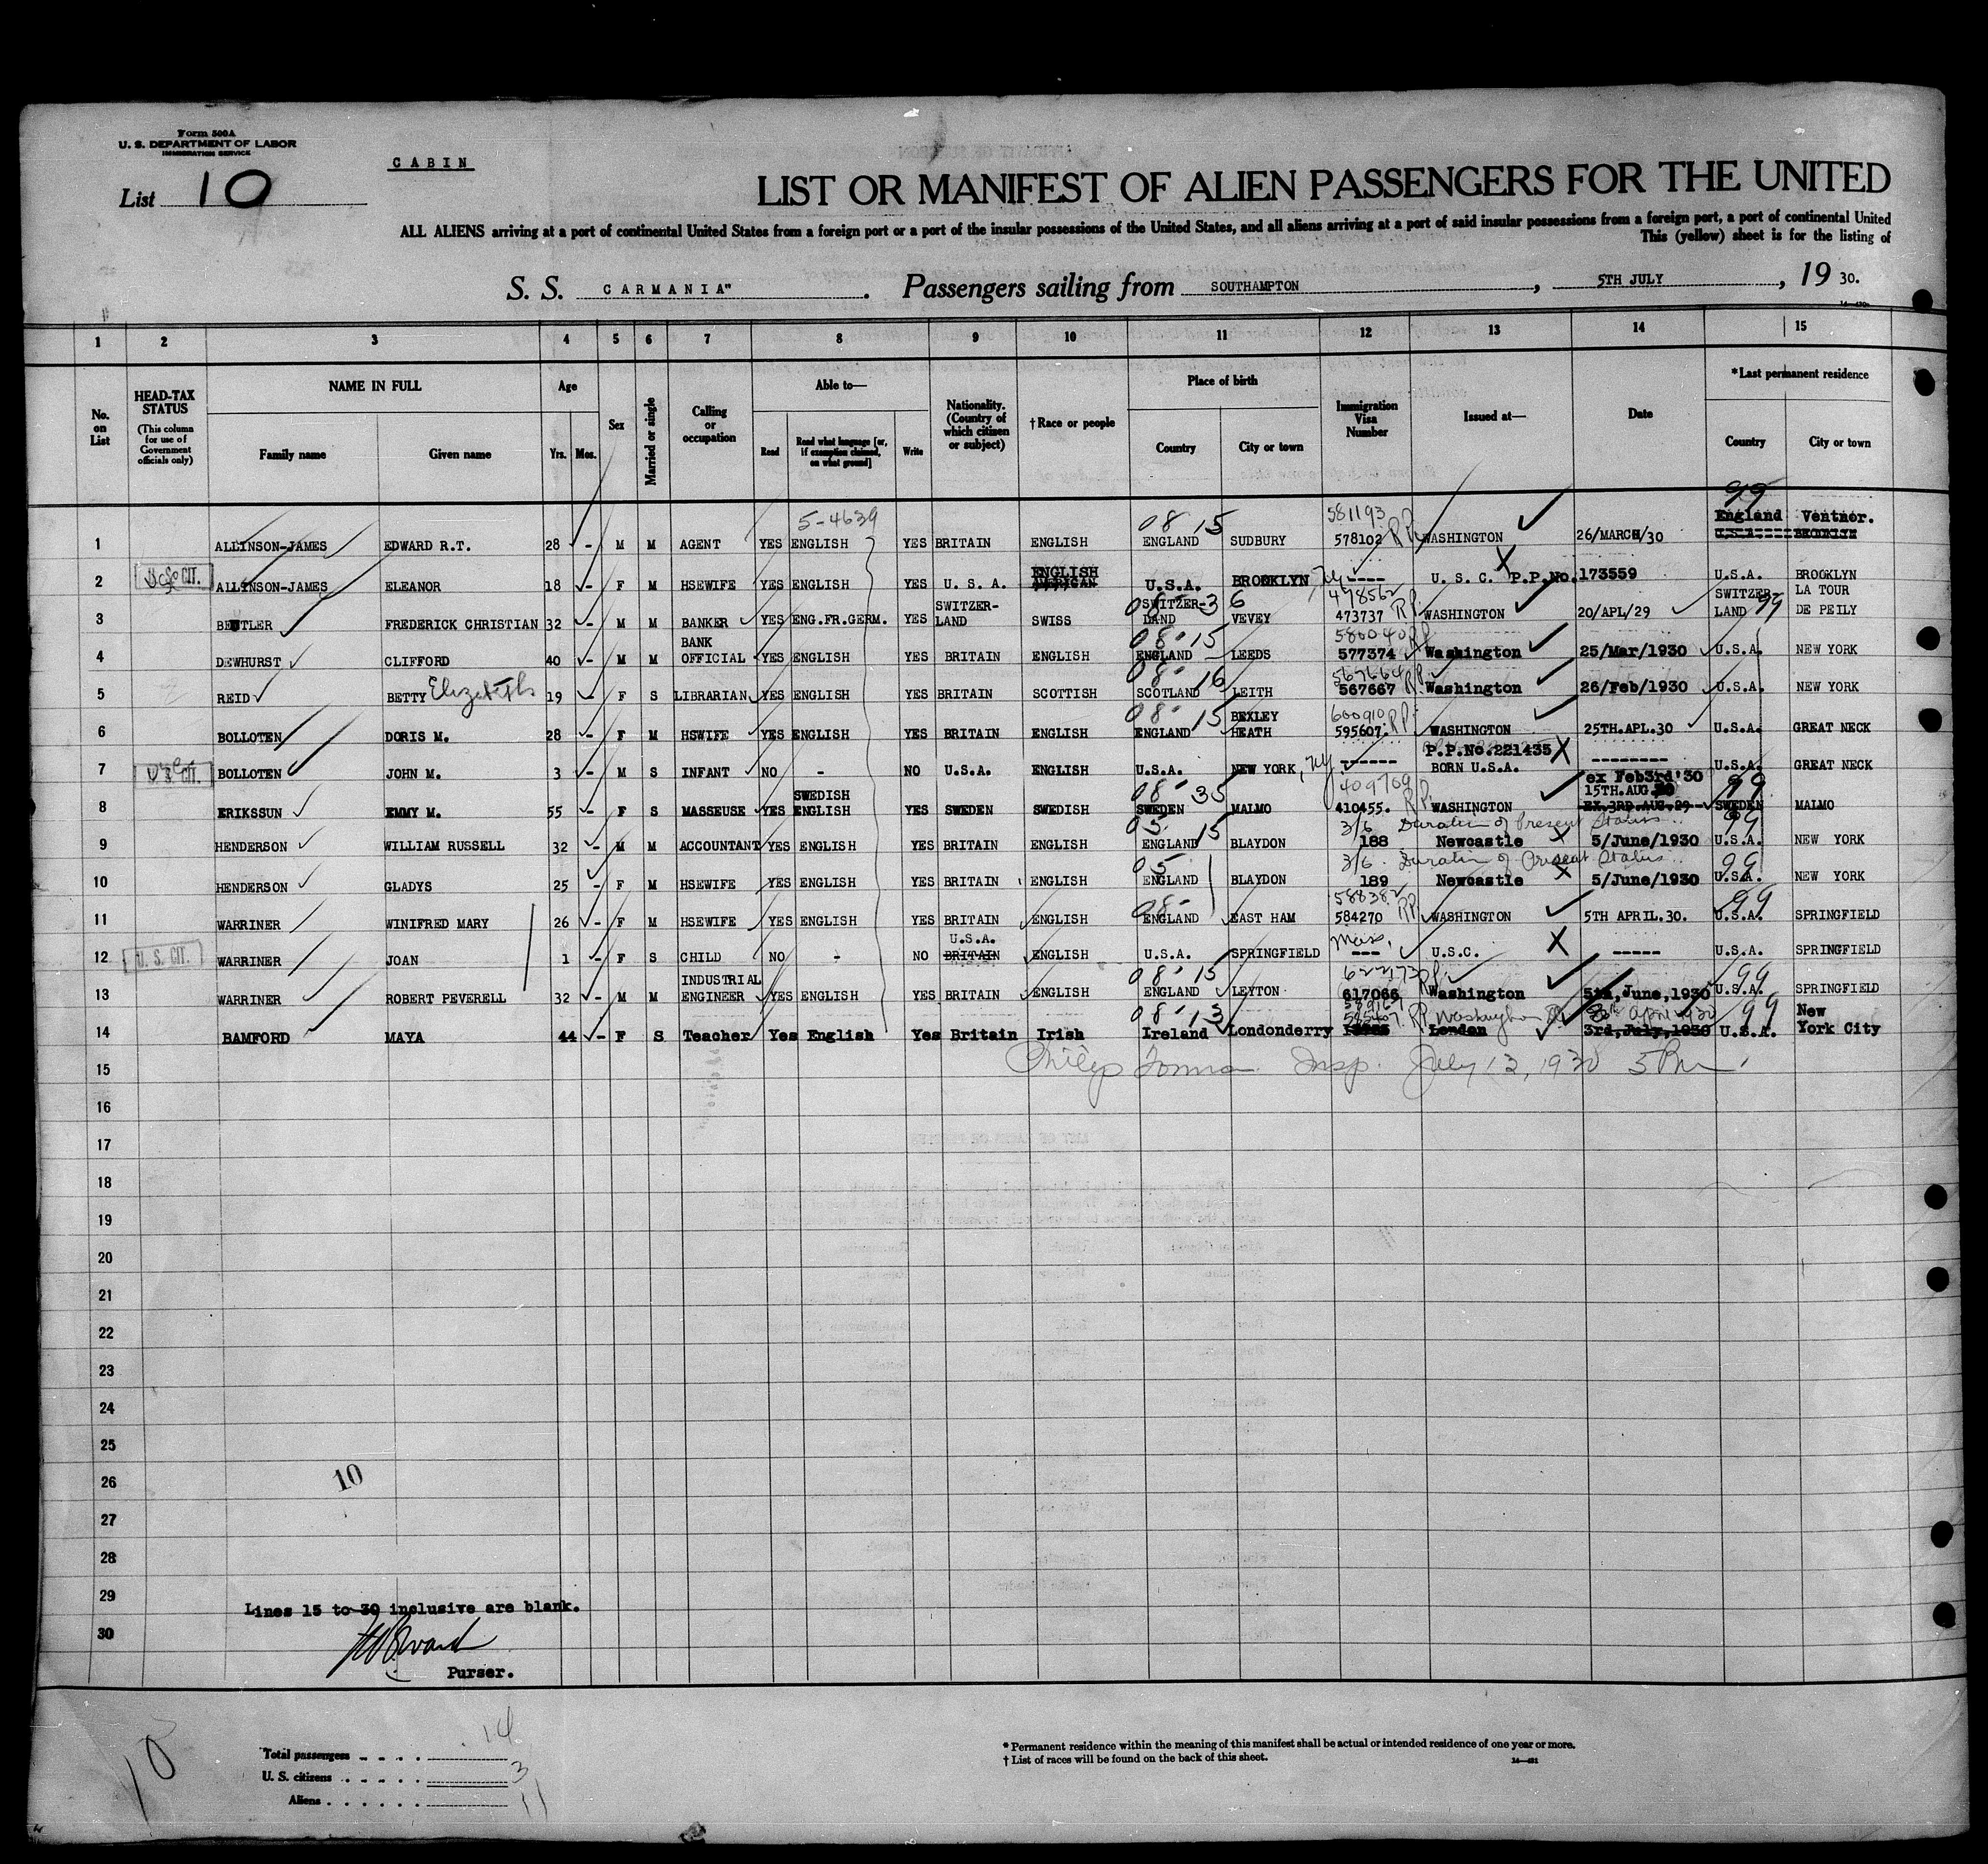 Form 500A
U. S. DEPARTMENT OF LABOR
IMMIGRATION SERVICE
CABIN
List 10
LIST OR MANIFEST OF ALIEN PASSENGERS FOR THE UNITED
ALL ALIENS arriving at a port of continental United States from a foreign port or a port of the insular possessions of the United States, and all aliens arriving at a port of said insular possessions from a foreign port, a port of continental United
This (yellow) sheet is for the listing of
S. S. CARMANIA" . Passengers sailing from SOUTHAMPTON , 5TH JULY , 19 30.
1 2 3 4 5 6 7 8 9 10 11 12 13 14 15
No. on List
HEAD-TAX STATUS (This column for use of Government officials only)
NAME IN FULL
Family name
Given name
Age
Yrs. Mos.
Sex
Married or single
Calling or occupation
Able to—
Read
Read what language [or, if exemption claimed, on what ground]
Write
Nationality. (Country of which citizen or subject)
†Race or people
Place of birth
Country
City or town
Immigration Visa Number
Issued at—
Date
*Last permanent residence
Country
City or town
5-4639 08 15 581193 99 England Ventnor.
1 ALLINSON-JAMES EDWARD R.T. 28 - M M AGENT YES ENGLISH YES BRITAIN ENGLISH ENGLAND SUDBURY 578102 RP WASHINGTON 26/MARCH/30 U.S.A. BROOKLYN
ENGLISH
2 U.S. CIT. ALLINSON-JAMES ELEANOR 18 - F M HSEWIFE YES ENGLISH YES U. S. A. AMERICAN U.S.A. BROOKLYN NY ---- U. S. C. P.P.No. 173559 U.S.A. BROOKLYN
3 BEUTLER FREDERICK CHRISTIAN 32 - M M BANKER YES ENG.FR.GERM. YES SWITZER-LAND SWISS SWITZER-LAND 08-36 VEVEY 498562 473737 RP WASHINGTON 20/APL/29 SWITZER-LAND 99 LA TOUR DE PEILY
4 DEWHURST CLIFFORD 40 - M M BANK OFFICIAL YES ENGLISH YES BRITAIN ENGLISH 08-15 ENGLAND LEEDS 580040 RP 577374 Washington 25/Mar/1930 U.S.A. NEW YORK
5 REID BETTY Elizabeth 19 - F S LIBRARIAN YES ENGLISH YES BRITAIN SCOTTISH 08-16 SCOTLAND LEITH 567667 RP Washington 26/Feb/1930 U.S.A. NEW YORK
6 BOLLOTEN DORIS M. 28 - F M HSWIFE YES ENGLISH YES BRITAIN ENGLISH 08-15 ENGLAND BEXLEY HEATH 600910 RP 595607. WASHINGTON 25TH.APL.30 U.S.A. GREAT NECK
7 U.S. CIT. BOLLOTEN JOHN M. 3 - M S INFANT NO - NO U.S.A. ENGLISH U.S.A. NEW YORK, NY ------ P.P.No.221435 BORN U.S.A. -------- U.S.A. GREAT NECK
8 ERIKSSUN EMMY M. 55 - F S MASSEUSE YES SWEDISH ENGLISH YES SWEDEN SWEDISH 08-35 SWEDEN MALMO 409709 410455. RP. WASHINGTON ex Feb3rd'30 15TH.AUG EX.3RD.AUG.29 99 SWEDEN MALMO
9 HENDERSON WILLIAM RUSSELL 32 - M M ACCOUNTANT YES ENGLISH YES BRITAIN ENGLISH 05. 15 ENGLAND BLAYDON 3/6 Duration of Present Status 188 Newcastle 5/June/1930 99 U.S.A. NEW YORK
10 HENDERSON GLADYS 25 - F M HSEWIFE YES ENGLISH YES BRITAIN ENGLISH 05 ENGLAND BLAYDON 3/6. Duration of Present Status 189 Newcastle 5/June/1930 99 U.S.A. NEW YORK
11 WARRINER WINIFRED MARY 26 - F M HSEWIFE YES ENGLISH YES BRITAIN ENGLISH 08- ENGLAND EAST HAM 588382 584270 RP WASHINGTON 5TH APRIL.30. 99 U.S.A. SPRINGFIELD
12 U. S. CIT. WARRINER JOAN 1 - F S CHILD NO - NO U.S.A. BRITAIN ENGLISH U.S.A. SPRINGFIELD Mass. --- U.S.C. ----- U.S.A. SPRINGFIELD
13 WARRINER ROBERT PEVERELL 32 - M M INDUSTRIAL ENGINEER YES ENGLISH YES BRITAIN ENGLISH 08-15 ENGLAND LEYTON 622173 RP. 617066 Washington 5th,June,1930 99 U.S.A. SPRINGFIELD
14 BAMFORD MAYA 44 - F S Teacher Yes English Yes Britain Irish 08-13 Ireland Londonderry RP Washington London April 1930 3rd,July,1930 99 U.S.A. New York City
15 Insp. July 13, 1930 5 Pm
16
17
18
19
20
21
22
23
24
25
26
10
27
28
29
Lines 15 to 30 inclusive are blank.
30
Purser.
10
Total passengers 14
U. S. citizens 3
Aliens 11
* Permanent residence within the meaning of this manifest shall be actual or intended residence of one year or more.
† List of races will be found on the back of this sheet.